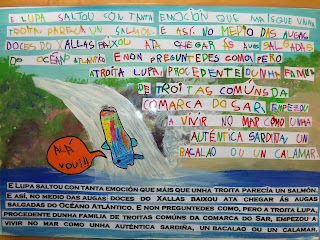 E LUPA SALTOU CON TANTA EMOCIÓN QUE MAIS QUE UNHA
TROITA PARECÍA UN SALMÓN. E ASÍ, NO MEDIO DAS AUGAS
DOCES DO XALLAS BAIXOU ATA CHEGAR ÁS AUGAS SALGADAS
DO OCÉANO ATLÁNTICO. E NON PREGUNTEDES COMO, PERO
A TROITA LUPA, PROCEDENTE DUNHA FAMILIA
DE TROITAS COMÚNS DA
COMARCA DO SAR, EMPEZOU
A VIVIR NO MAR COMO UNHA
AUTÉNTICA SARDIÑA, UN
BACALAO OU UN CALAMAR.
ALÁ
VOU!!!
E LUPA SALTOU CON TANTA EMOCIÓN QUE MÁIS QUE UNHA TROITA PARECÍA UN SALMÓN.
E ASÍ, NO MEDIO DAS AUGAS DOCES DO XALLAS BAIXOU ATA CHEGAR ÁS AUGAS
SALGADAS DO OCÉANO ATLÁNTICO. E NON PREGUNTEDES COMO, PERO A TROITA LUPA,
PROCEDENTE DUNHA FAMILIA DE TROITAS COMÚNS DA COMARCA DO SAR, EMPEZOU A
VIVIR NO MAR COMO UNHA AUTÉNTICA SARDIÑA, UN BACALAO OU UN CALAMAR.